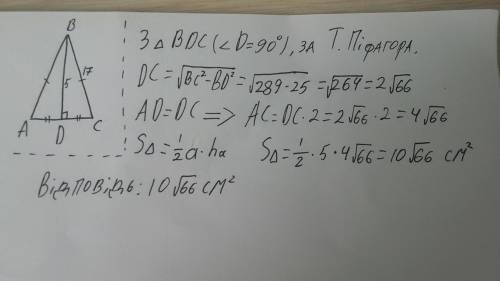 B
5
17
A
D
C
З △ BDC (∠D=90°), за Т. Піфагора.
DC = √BC²-BD² = √289·25 = √264 = 2√66
AD = DC => AC = DC·2 = 2√66·2 = 4√66
S△ = 1/2 a·hₐ S△ = 1/2 · 5 · 4√66 = 10√66 см²
Відповідь: 10√66 см²